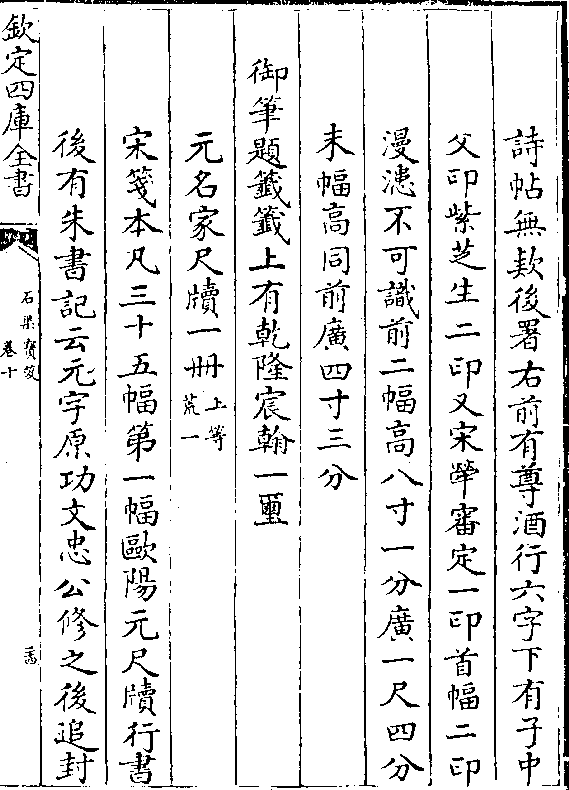 詩帖無欵後署右前有尊酒行六字下有子中
父印紫芝生二印又宋犖審定一印首幅二印
漫漶不可識前二幅高八寸一分廣一尺四分
末幅高同前廣四寸三分
御筆題籤籤上有乾隆宸翰一璽
元名家尺牘一冊上等荒一
宋箋本凡三十五幅第一幅歐陽元尺牘行書
後有朱書記云元字原功文忠公修之後追封
欽定四庫全書
石渠寶笈
卷十